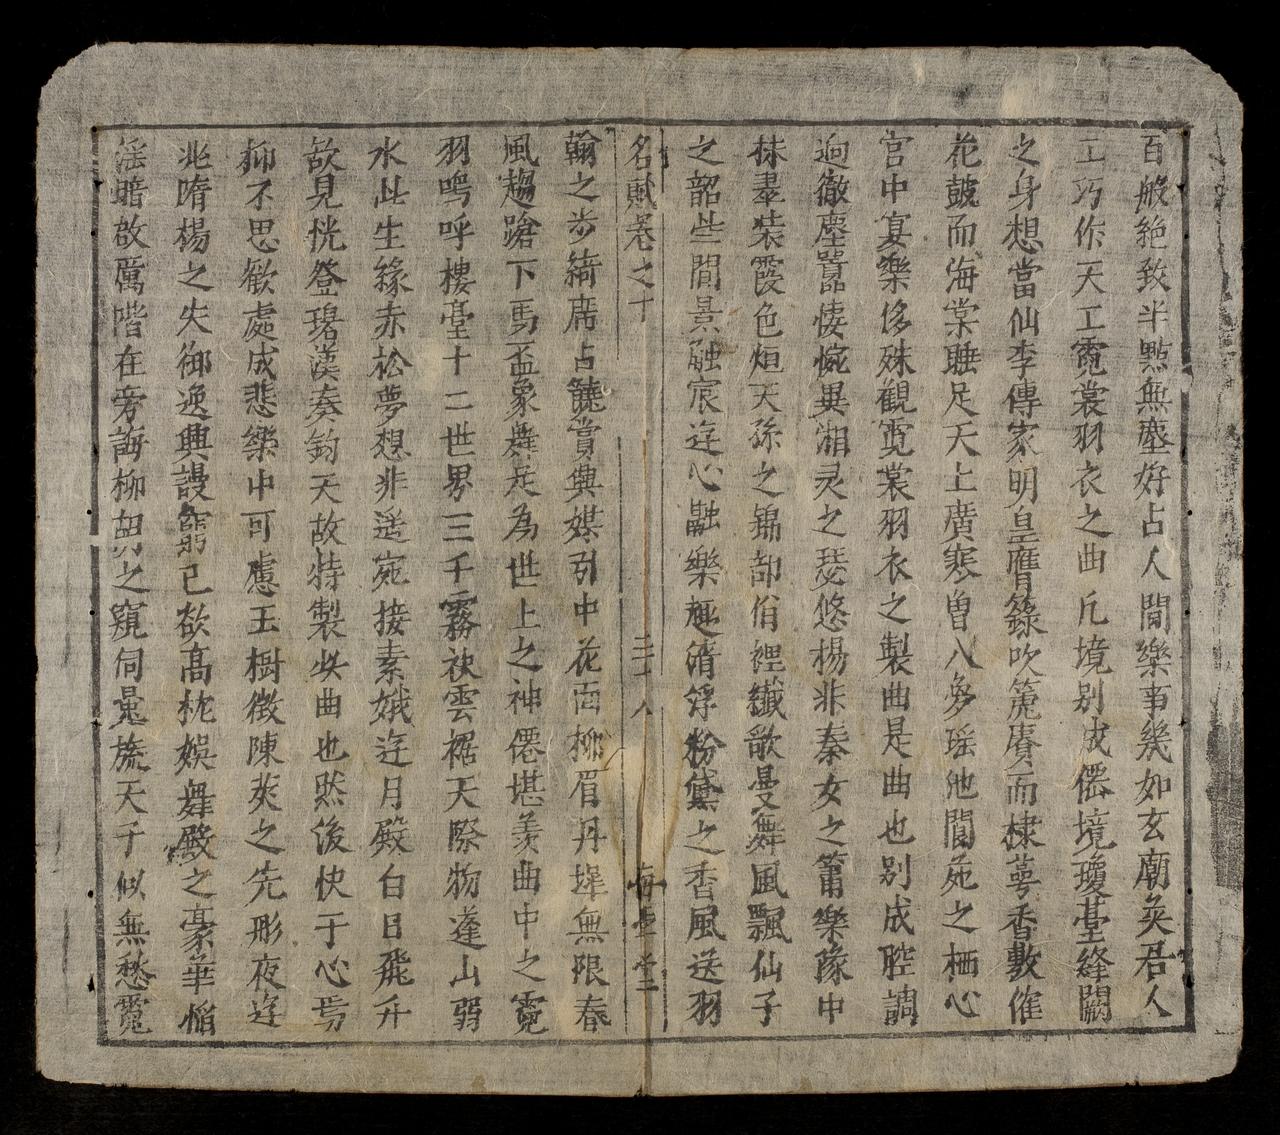 百般絶致半點無塵好占人間樂事幾如玄廟矣君人
工巧作天工霓裳羽衣之曲凡境别成僊境瓊䑓絳闕
之身想當仙李傳家明皇膺籙吹箎賡而棣萼香敷催
花鼓而海棠睡足天上廣寒曾入夢瑶池閬苑之栖心
宮中宴樂侈殊觀霓裳羽衣之製曲是曲也别成腔調
逈徹塵囂悽惋異湘灵之瑟悠楊非秦女之簫樂隊中
抹翠装霞色烜天孫之錦部伯裡纖歌曼舞風飄仙子
之韶些間景融宸遊心融樂趣清浮粉黛之香風送羽
名賦卷之十 三十八 海學堂
翰之步綺席占饒賞興媒引中花面柳眉丹墀無限春
風趨蹌下馬盃象舞是為世上之神僊堪羨曲中之霓
羽嗚呼樓䑓十二世界三千霧袂雲裾天際物蓬山弱
水此生緣赤松夢想非遥宛接素娥遊月殿白日飛升
欲見恍登碧漢奏鈞天故特製此曲也然後快于心焉
抑不思歡處成悲樂中可慮玉樹徵陳羙之先形夜遊
兆隋楊之失御逸興謾窮已欲高枕娛舞殿之豪華惱
滛暗故厲階在旁誨柳胡之窺伺羃旒天千似無愁霓